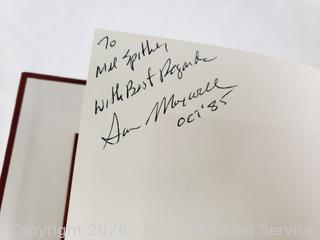 To
Mel
With Best Regards
Sam Maxwell
Oct '85
Copyright 2026 - Auction Service